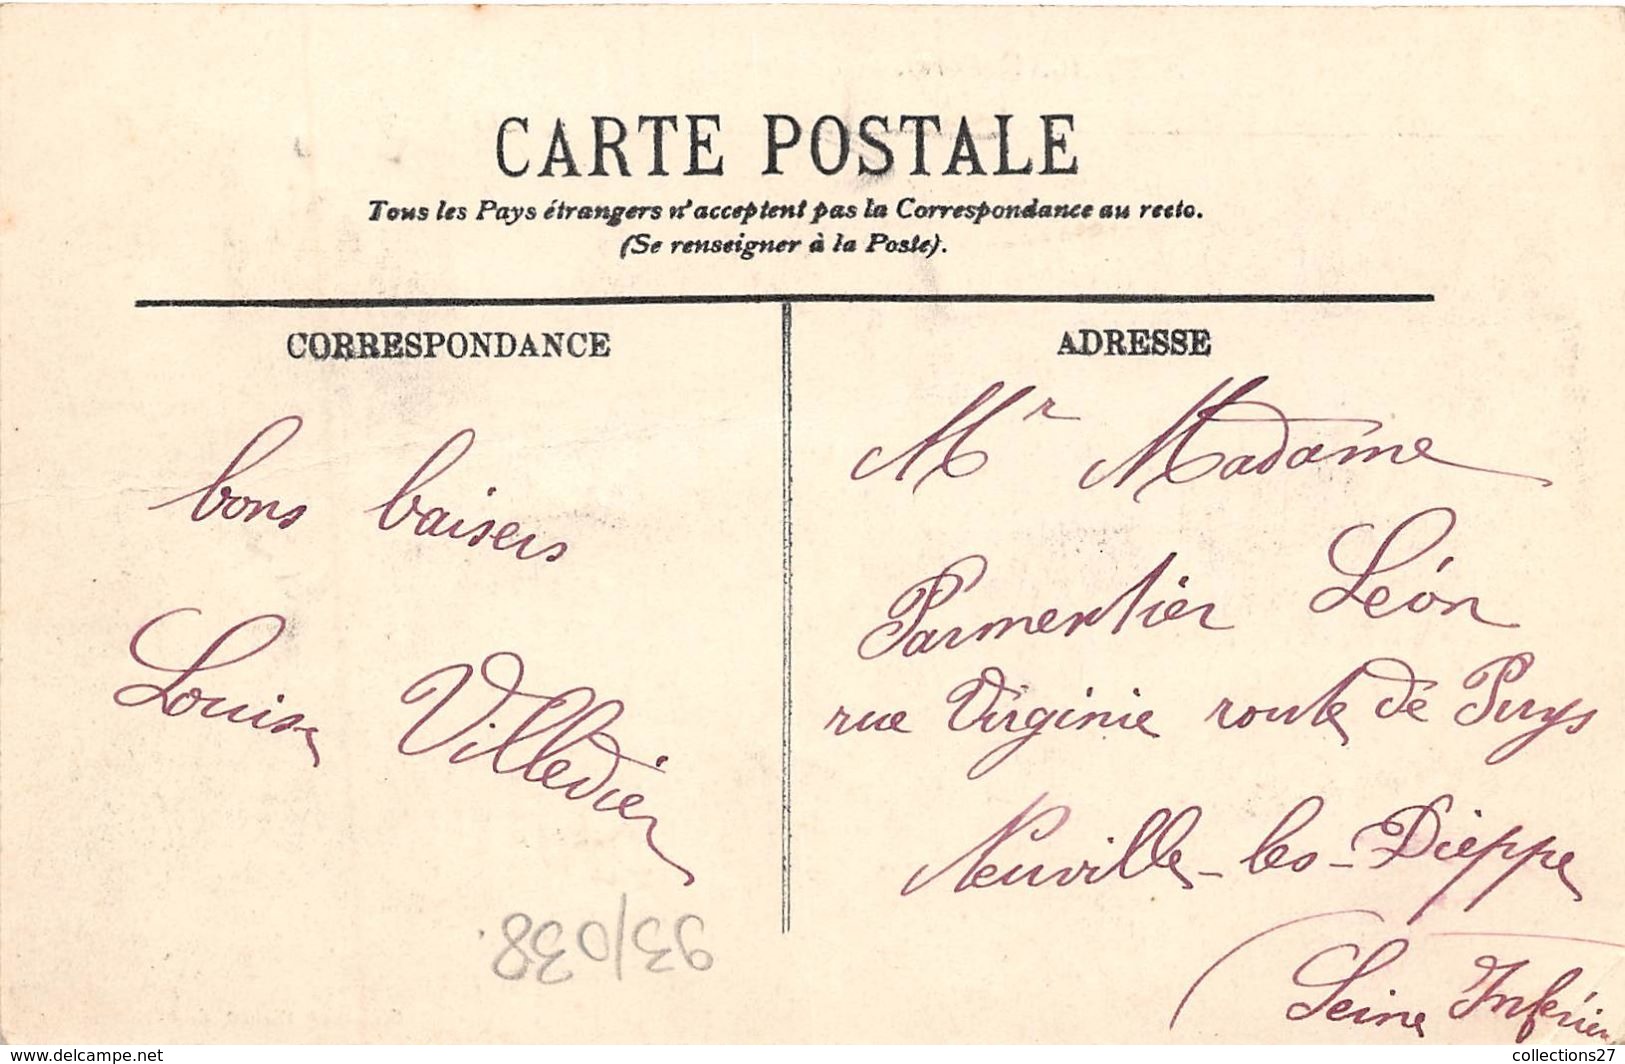 CARTE POSTALE
Tous les Pays étrangers n'acceptent pas la Correspondance au recto.
(Se renseigner à la Poste).
CORRESPONDANCE
bons baisers
Louise Villedieu
93/038.
ADRESSE
Mr Madame
Parmentier Léon
rue Virginie route de Puys
Neuville-les-Dieppe
(Seine Inférieu
collections27